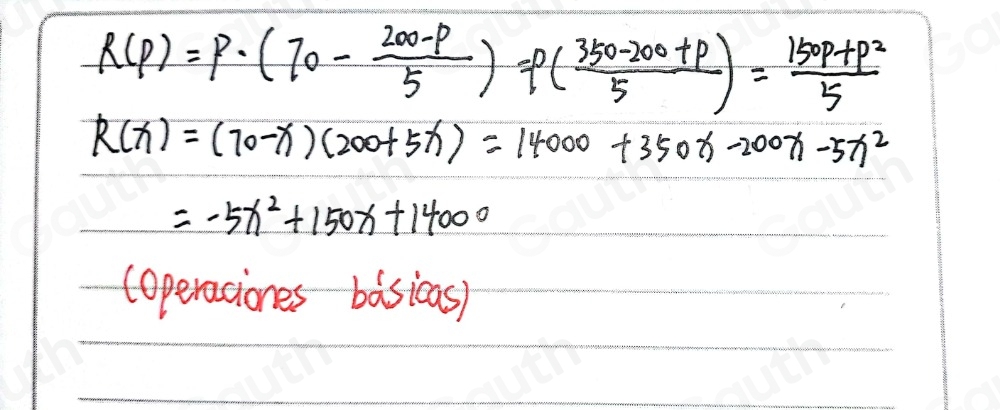 R(p) = P · (70 - \frac{200-p}{5}) = P(\frac{350-200+p}{5}) = \frac{150p+p^2}{5}
R(x) = (70-x)(200+5x) = 14000 + 350x - 200x - 5x²
= -5x² + 150x + 14000
(Operaciones básicas)